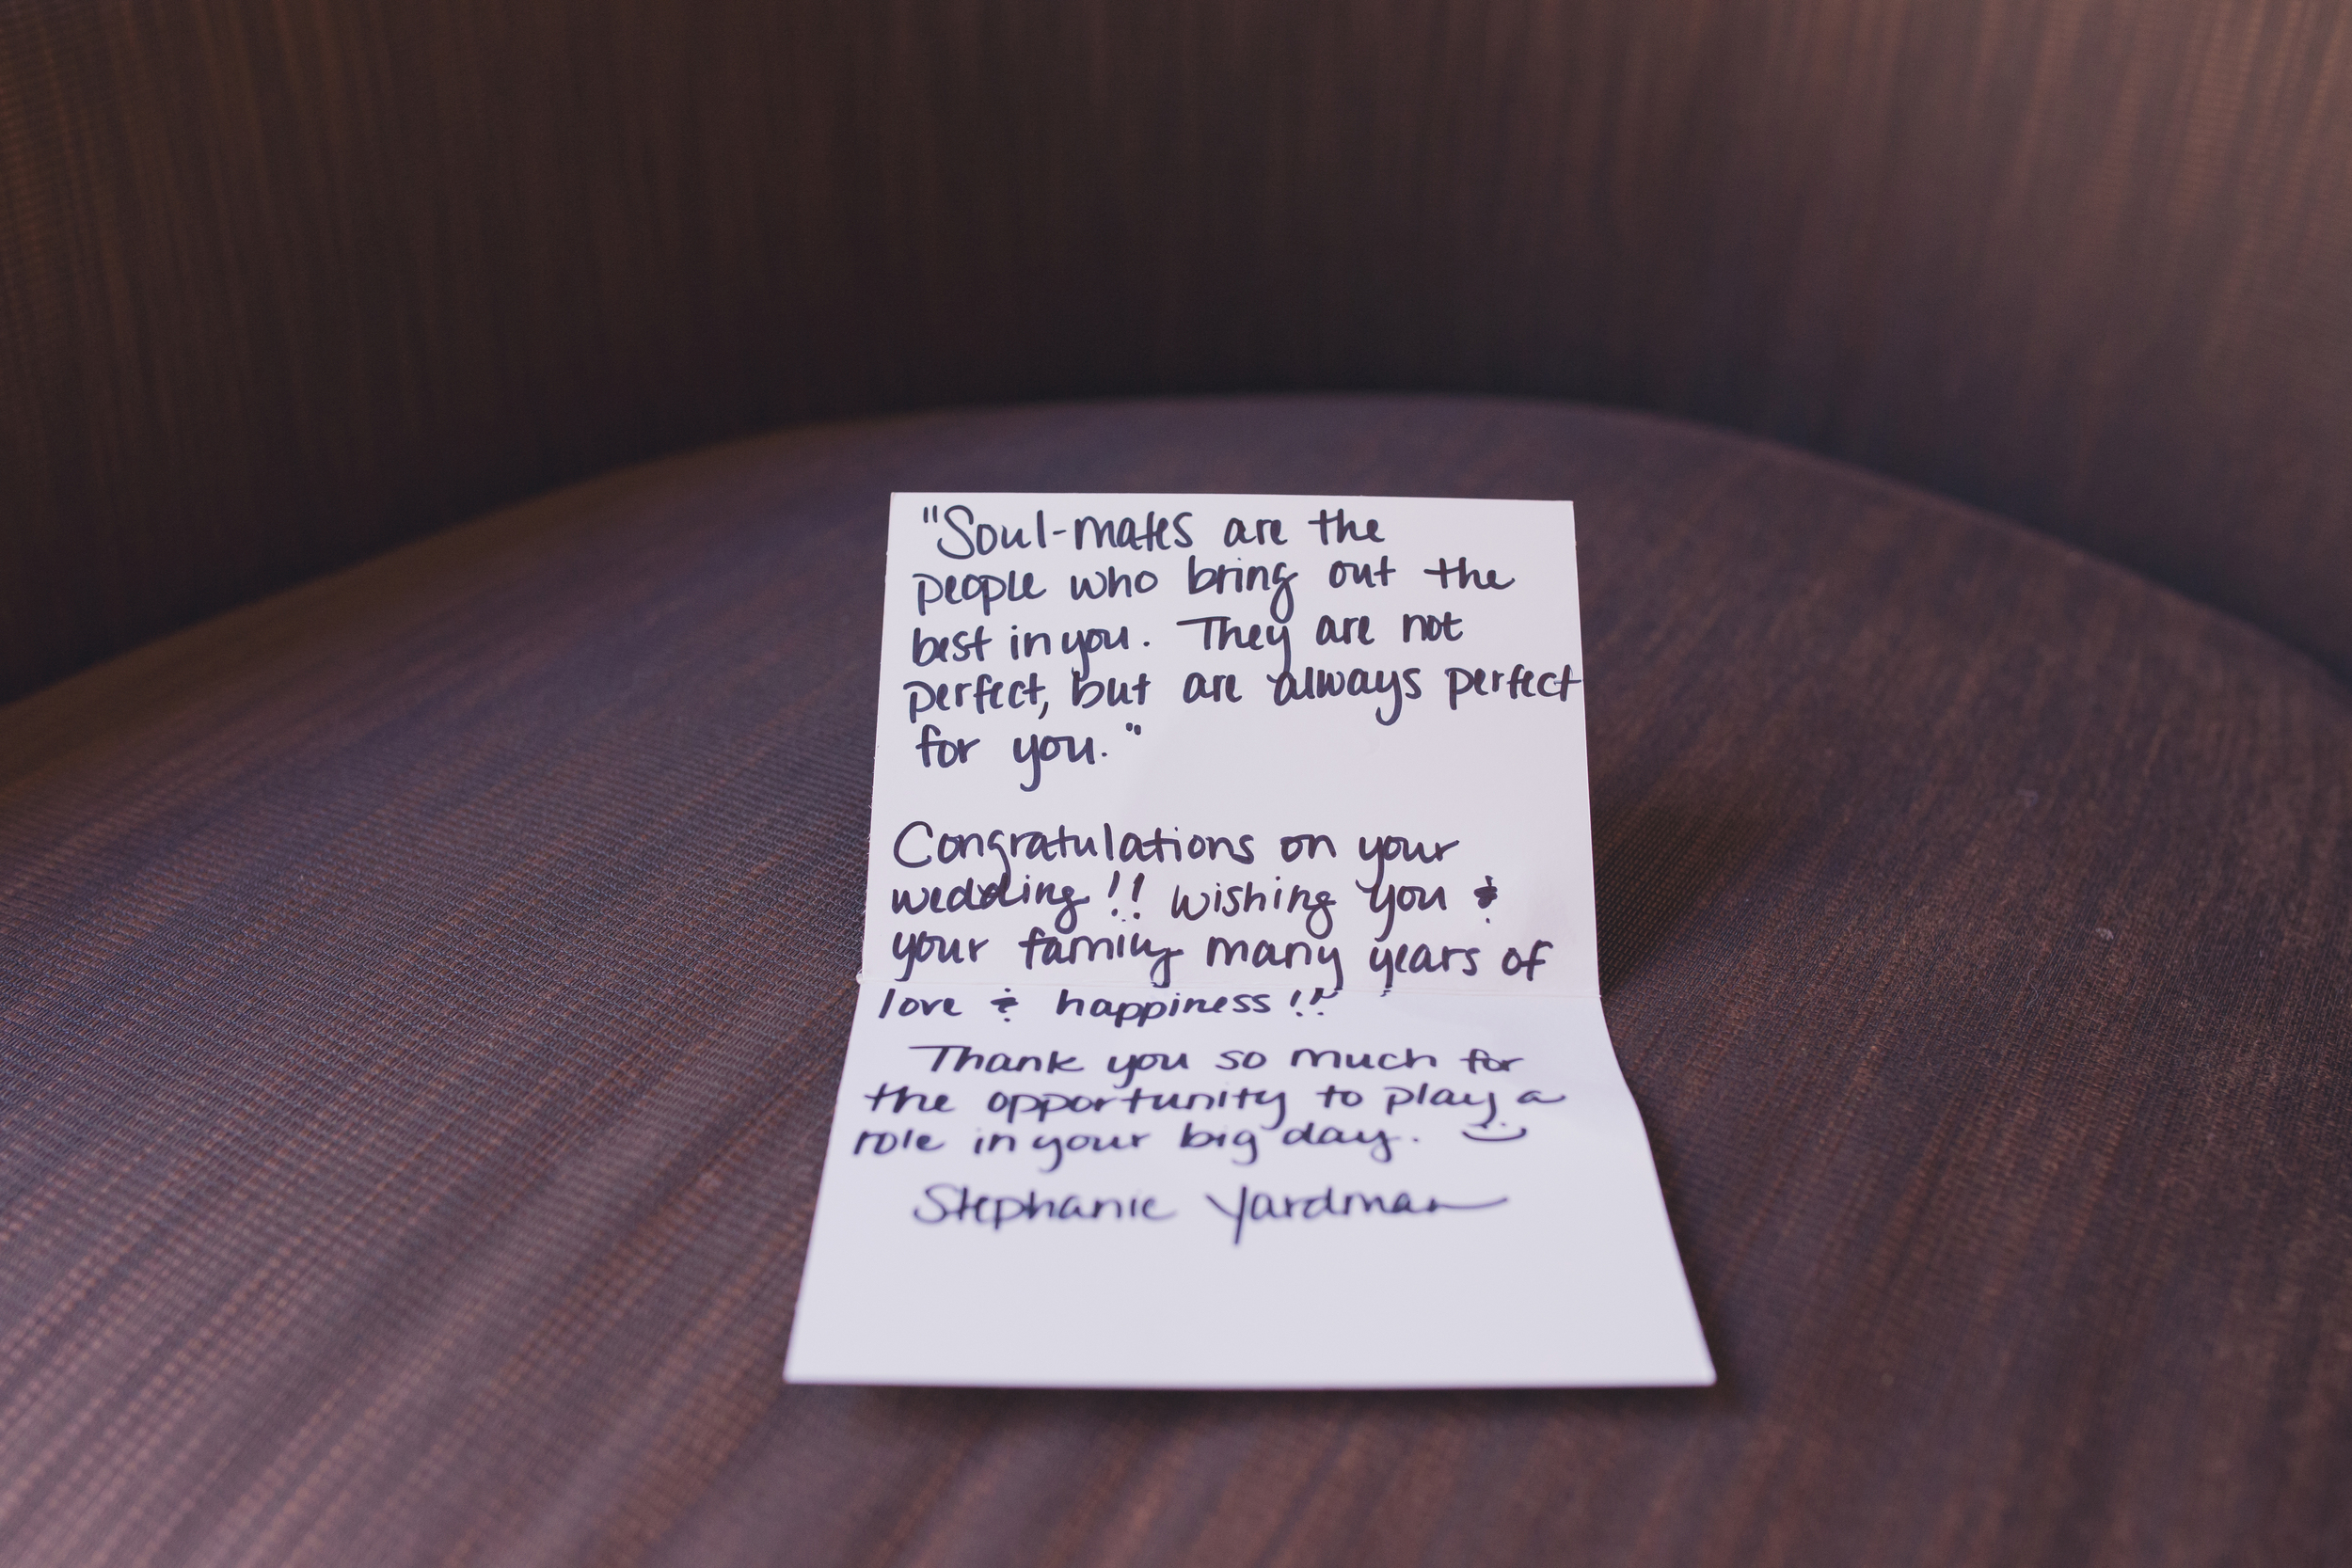 "Soul-mates are the
people who bring out the
best in you. They are not
perfect, but are always perfect
for you."
Congratulations on your
wedding!! Wishing you &
your family many years of
love & happiness!!
Thank you so much for
the opportunity to play a
role in your big day. :)
Stephanie Yardman